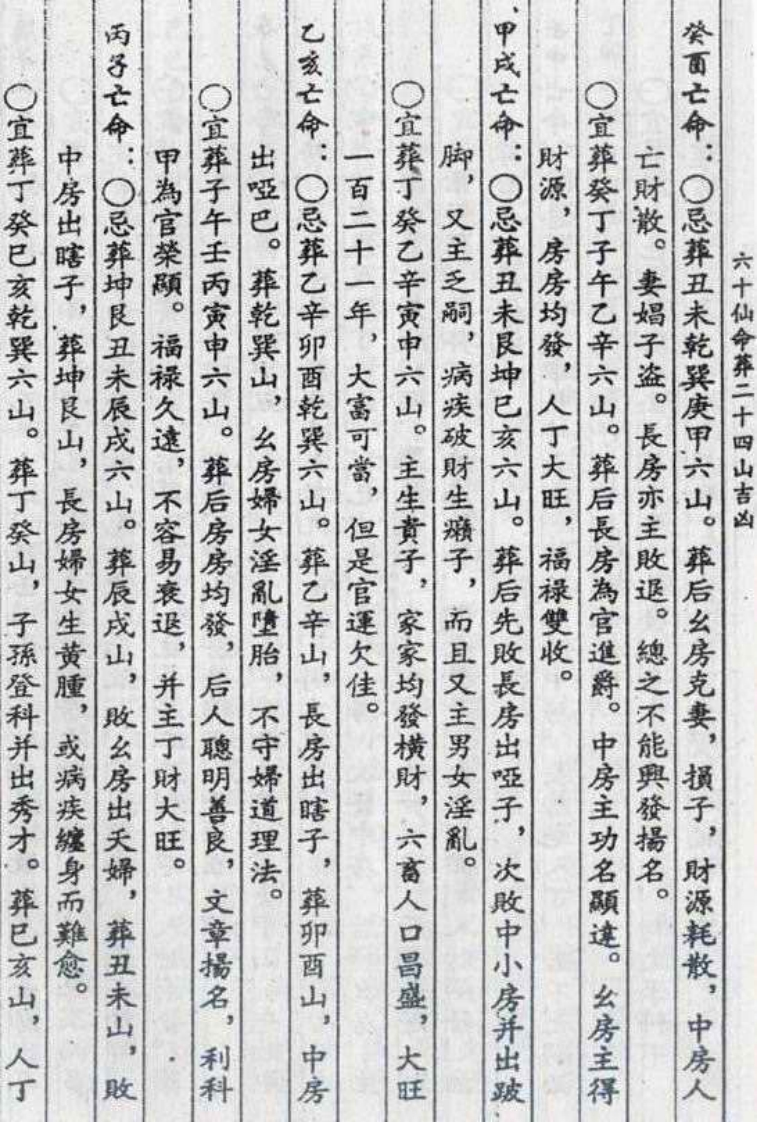 六十仙命葬二十四山吉凶
癸酉亡命：〇忌葬丑未乾巽庚甲六山。葬后幺房克妻，損子，財源耗散，中房人
亡財散。妻娼子盜。長房亦主敗退。總之不能興發揚名。
〇宜葬癸丁子午乙辛六山。葬后長房為官進爵。中房主功名顯達。幺房主得
財源，房房均發，人丁大旺，福祿雙收。
甲戌亡命：〇忌葬丑未艮坤巳亥六山。葬后先敗長房出啞子，次敗中小房并出跛
脚，又主乏嗣，病疾破財生癩子，而且又主男女淫亂。
〇宜葬丁癸乙辛寅申六山。主生貴子，家家均發橫財，六畜人口昌盛，大旺
一百二十一年，大富可當，但是官運欠佳。
乙亥亡命：〇忌葬乙辛卯酉乾巽六山。葬乙辛山，長房出瞎子，葬卯酉山，中房
出啞巴。葬乾巽山，幺房婦女淫亂墮胎，不守婦道理法。
〇宜葬子午壬丙寅申六山。葬后房房均發，后人聰明善良，文章揚名，利科
甲為官榮顯。福祿久遠，不容易衰退，并主丁財大旺。
丙子亡命：〇忌葬坤艮丑未辰戌六山。葬辰戌山，敗幺房出夭婦，葬丑未山，敗
中房出瞎子，葬坤艮山，長房婦女生黃腫，或病疾纏身而難愈。
〇宜葬丁癸巳亥乾巽六山。葬丁癸山，子孫登科并出秀才。葬巳亥山，人丁